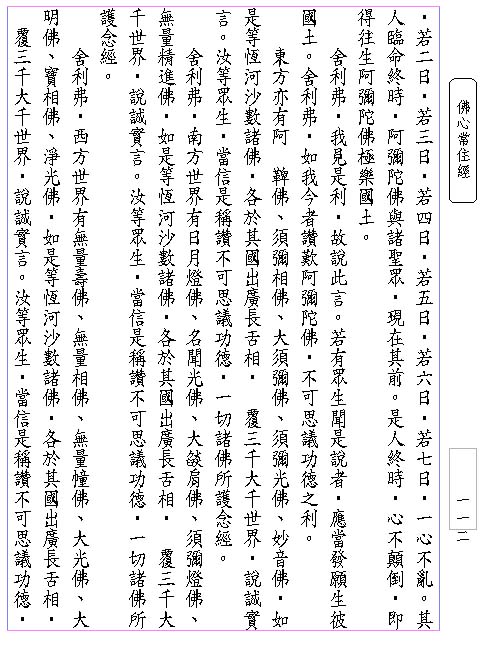 佛心常住經
．若二日．若三日．若四日．若五日．若六日．若七日．一心不亂。其
人臨命終時．阿彌陀佛與諸聖眾．現在其前。是人終時．心不顛倒．即
得往生阿彌陀佛極樂國土。
舍利弗．我見是利．故說此言。若有眾生聞是說者．應當發願生彼
國土。舍利弗．如我今者讚歎阿彌陀佛．不可思議功德之利。
東方亦有阿　鞞佛、須彌相佛、大須彌佛、須彌光佛、妙音佛．如
是等恆河沙數諸佛．各於其國出廣長舌相．　覆三千大千世界．說誠實
言。汝等眾生．當信是稱讚不可思議功德．一切諸佛所護念經。
舍利弗．南方世界有日月燈佛、名聞光佛、大燄肩佛、須彌燈佛、
無量精進佛．如是等恆河沙數諸佛．各於其國出廣長舌相．　覆三千大
千世界．說誠實言。汝等眾生．當信是稱讚不可思議功德．一切諸佛所
護念經。
舍利弗．西方世界有無量壽佛、無量相佛、無量幢佛、大光佛、大
明佛、寶相佛、淨光佛．如是等恆河沙數諸佛．各於其國出廣長舌相．
覆三千大千世界．說誠實言。汝等眾生．當信是稱讚不可思議功德．
一一二